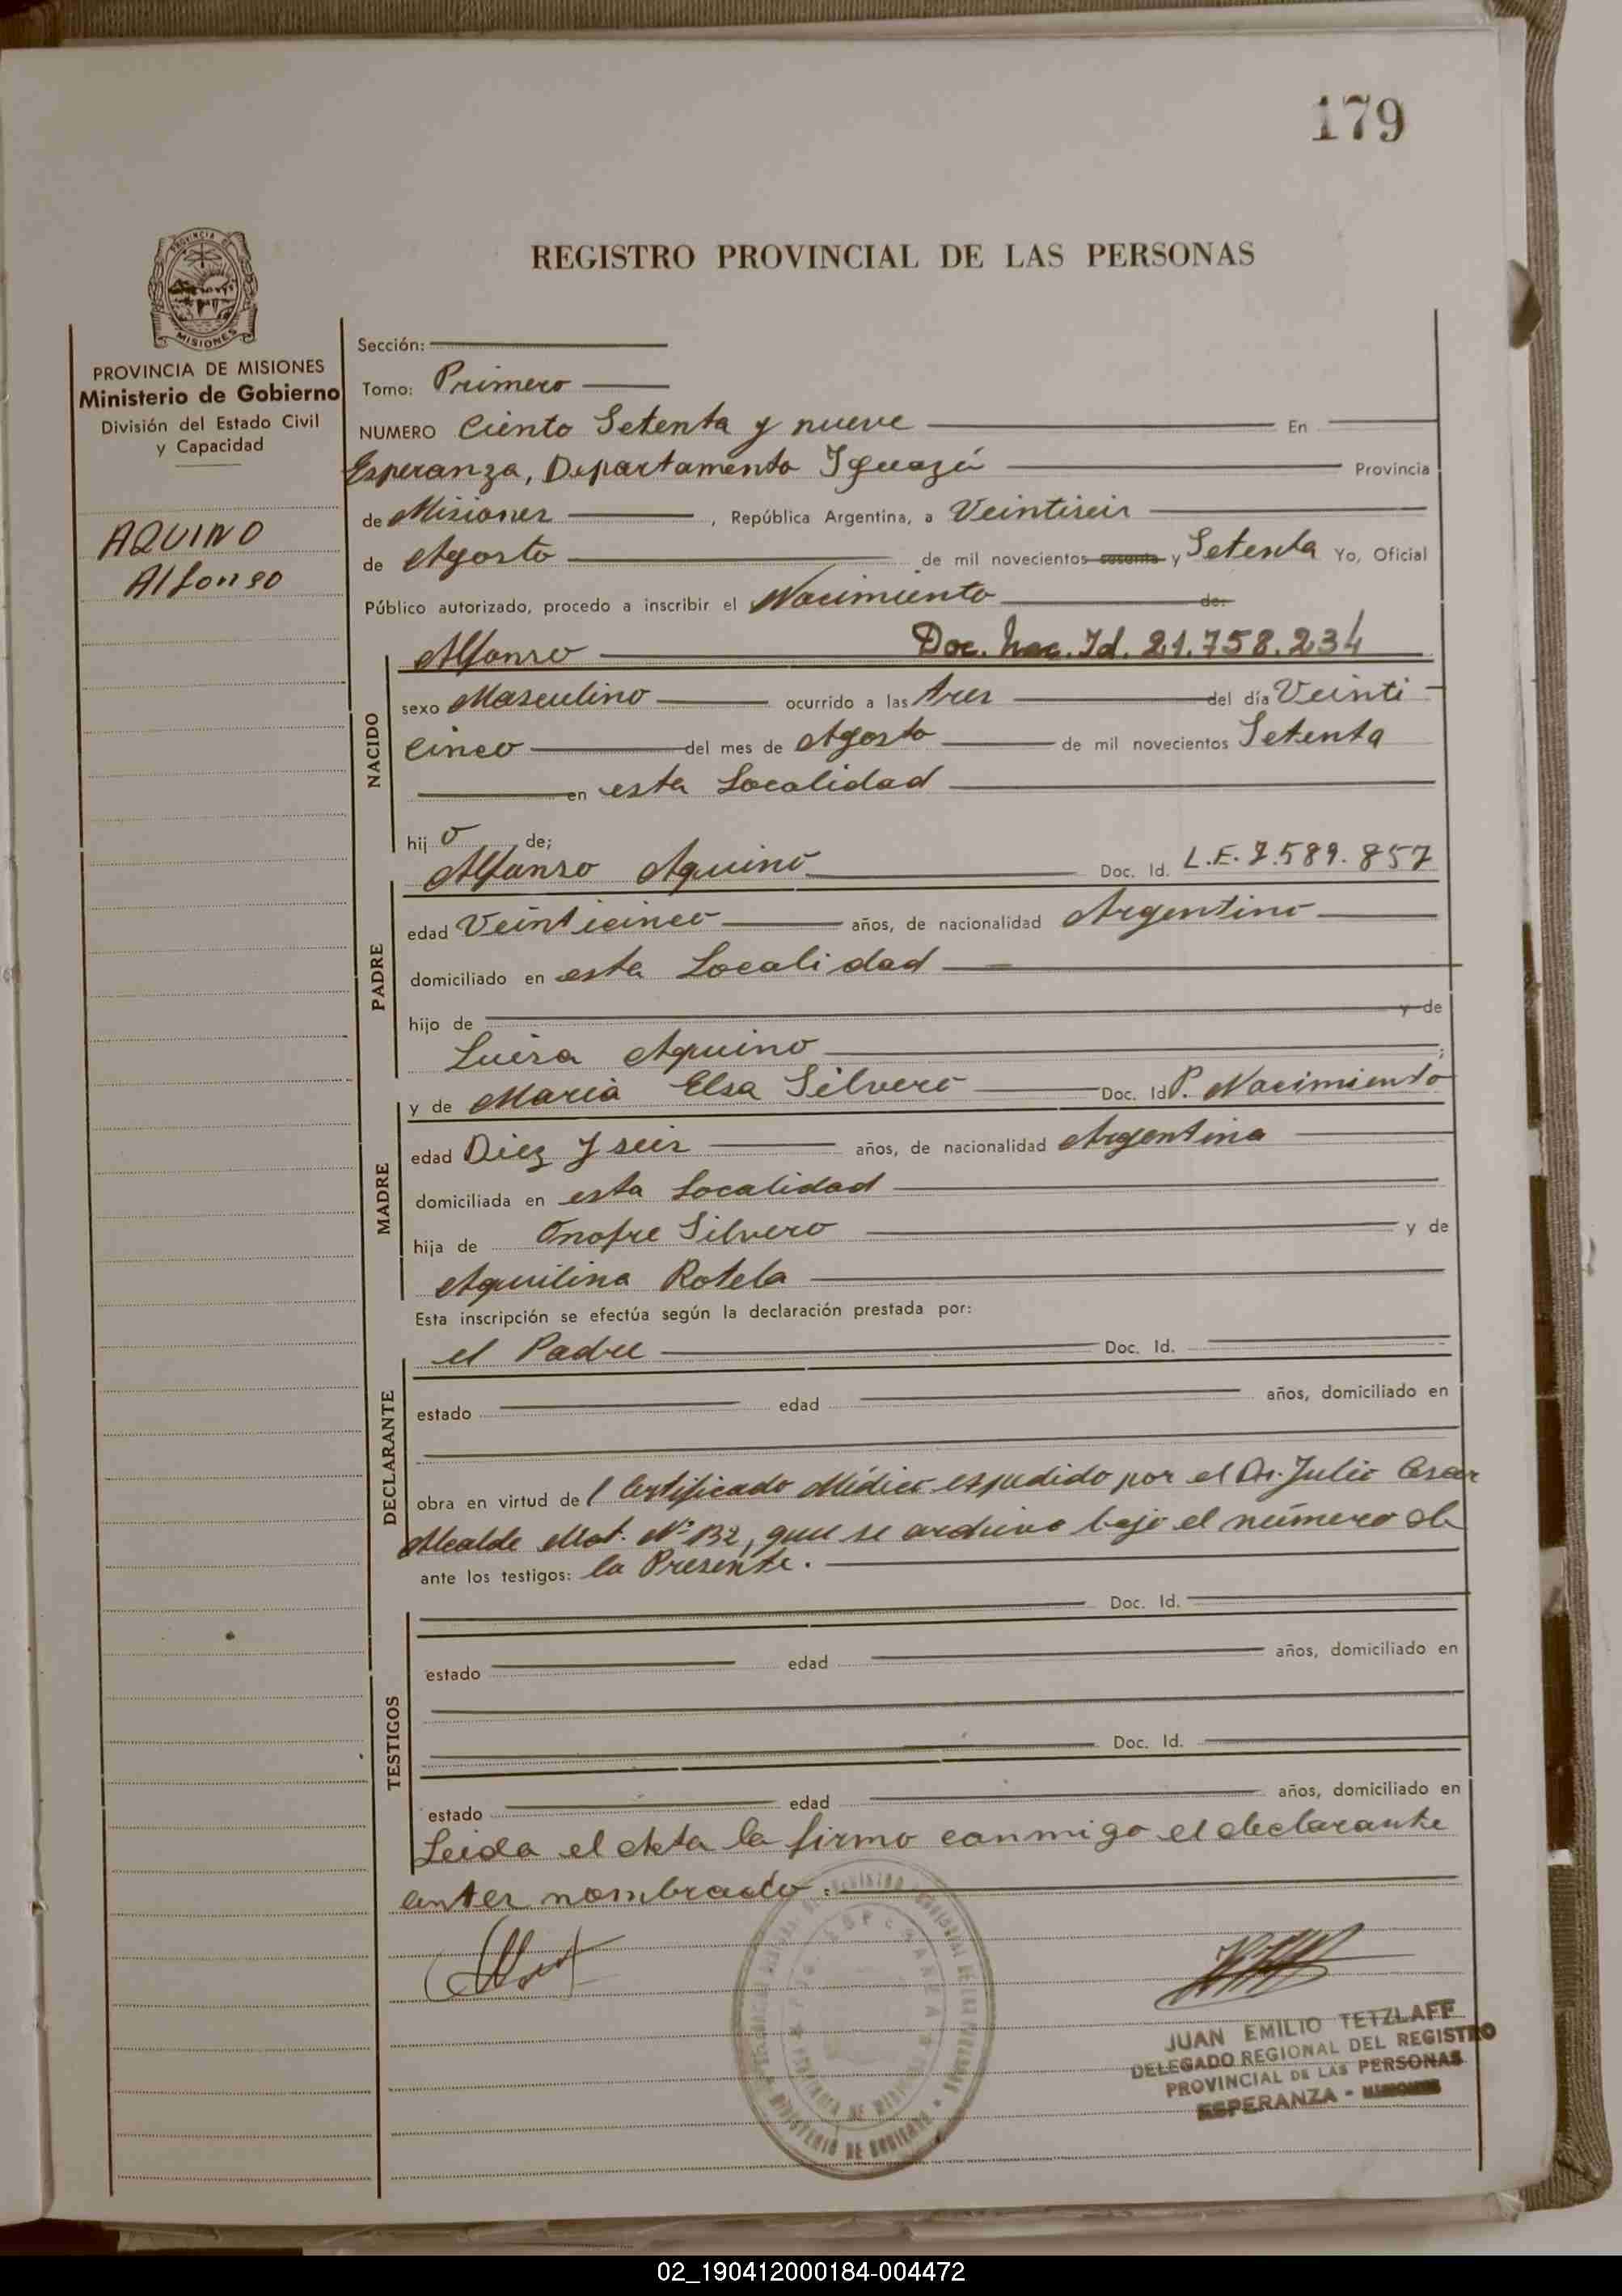 179
PROVINCIA DE
MISIONES
REGISTRO PROVINCIAL DE LAS PERSONAS
PROVINCIA DE MISIONES
Ministerio de Gobierno
División del Estado Civil
y Capacidad
AQUINO
Alfonso
Sección:
Tomo: Primero
NUMERO Ciento Setenta y nueve En
Esperanza, Departamento Iguazú Provincia
de Misiones, República Argentina, a Veintiseis
de Agosto de mil novecientos sesenta y Setenta Yo, Oficial
Público autorizado, procedo a inscribir el Nacimiento de:
Alfonso Doc. Nac. Id. 21.758.234
NACIDO
sexo Masculino ocurrido a las tres del día Veinti
cinco del mes de Agosto de mil novecientos Setenta
en esta Localidad
hij o de;
Alfonso Aquino Doc. Id. L.E. 7.589.857
PADRE
edad Veinticinco años, de nacionalidad Argentino
domiciliado en esta Localidad
hijo de y de
Luisa Aquino ;
y de Maria Elsa Silvero Doc. Id P. Nacimiento
MADRE
edad Diez y seis años, de nacionalidad Argentina
domiciliada en esta Localidad
hija de Onofre Silvero y de
Aquilina Rotela
Esta inscripción se efectúa según la declaración prestada por:
el Padre Doc. Id.
DECLARANTE
estado edad años, domiciliado en
obra en virtud de l Certificado Médico espedido por el Dr. Julio Cesar
Alcalde Mat. Nº 132, que se archivo bajo el número de
ante los testigos: la Presente.
Doc. Id.
TESTIGOS
estado edad años, domiciliado en
Doc. Id.
estado edad años, domiciliado en
Leida el Acta la firmo conmigo el declarante
antes nombrado.
JUAN EMILIO TETZLAFF
DELEGADO REGIONAL DEL REGISTRO
PROVINCIAL DE LAS PERSONAS
ESPERANZA - MISIONES
02_190412000184-004472